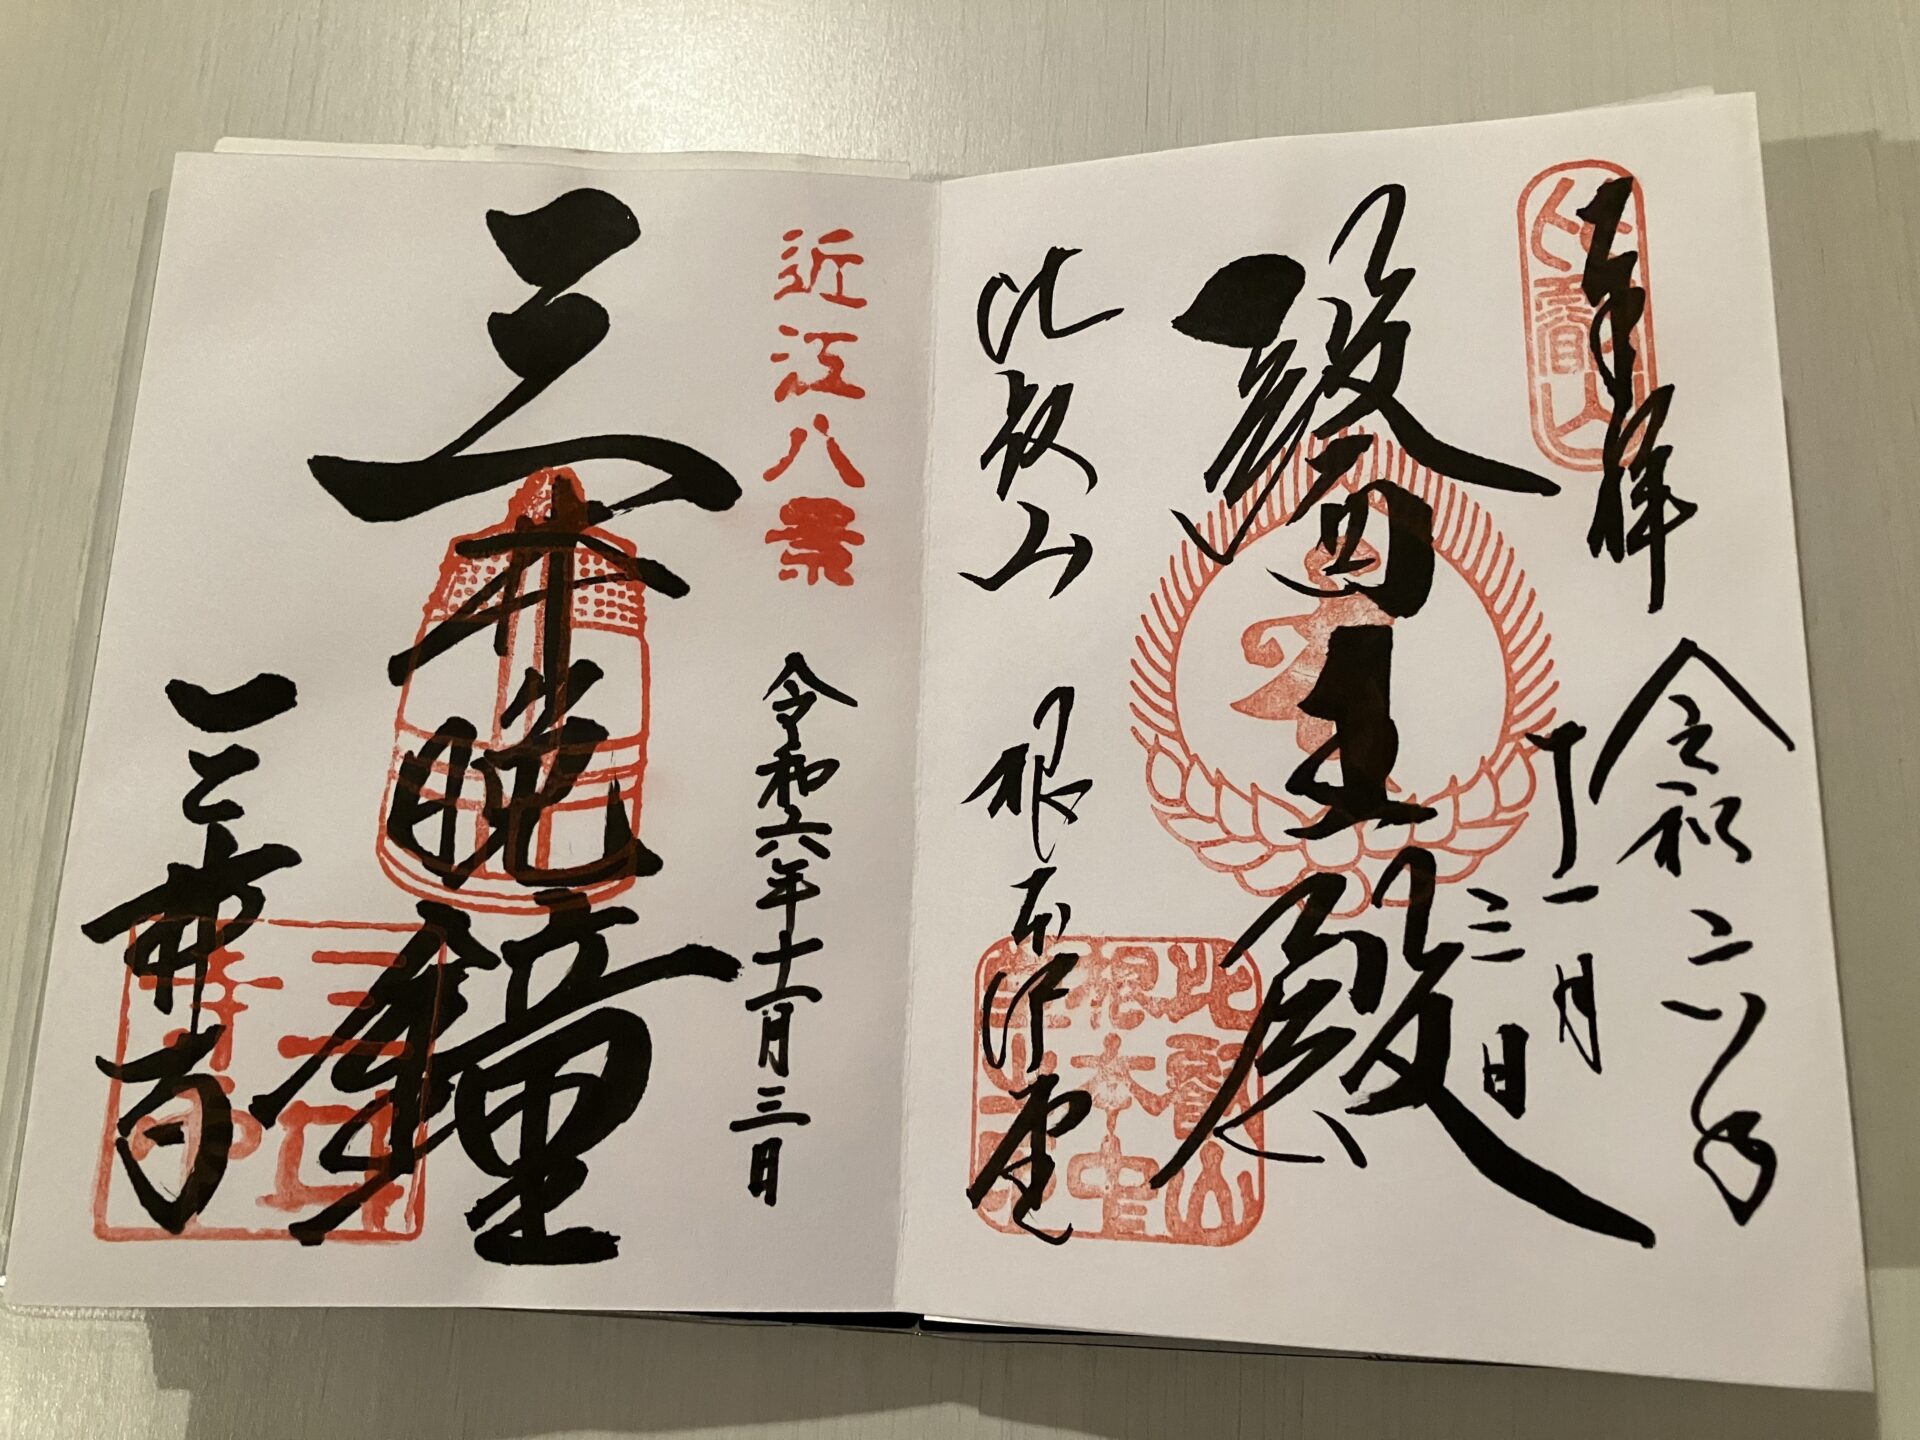 奉拝
比叡山
令和六年
十一月
三日
醫王殿
比叡山 根本中堂
比叡山
根本中
堂之印
近江八景
令和六年十一月三日
三井晩鐘
三井寺